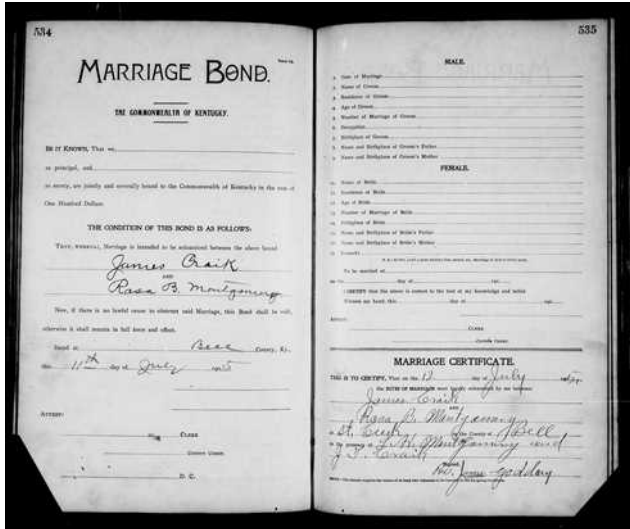 534
MARRIAGE BOND.
THE COMMONWEALTH OF KENTUCKY.
BE IT KNOWN, That we,
as principal, and
as surety, are jointly and severally bound to the Commonwealth of Kentucky in the sum of
One Hundred Dollars.
THE CONDITION OF THIS BOND IS AS FOLLOWS:
THAT, WHEREAS, Marriage is intended to be solemnized between the above bound
James Craik
AND
Rosa B. Montgomery
Now, if there is no lawful cause to obstruct said Marriage, this Bond shall be void,
otherwise it shall remain in full force and effect.
Dated at Bell County, Ky.,
this 11th day of July
ATTEST:
CLERK
County Court.
D. C.
535
MALE.
1. Date of Marriage
2. Name of Groom
3. Residence of Groom
4. Age of Groom
5. Number of Marriage of Groom
6. Occupation
7. Birthplace of Groom
8. Name and Birthplace of Groom's Father
9. Name and Birthplace of Groom's Mother
FEMALE.
10. Name of Bride
11. Residence of Bride
12. Age of Bride
13. Number of Marriage of Bride
14. Birthplace of Bride
15. Name and Birthplace of Bride's Father
16. Name and Birthplace of Bride's Mother
17. Remarks
To be married at
on the day of 190
I CERTIFY that the above is correct to the best of my knowledge and belief.
Witness my hand this day of 190
ATTEST:
CLERK
County Court.
MARRIAGE CERTIFICATE.
THIS IS TO CERTIFY, That on the 12 day of July
the RITES OF MARRIAGE were legally solemnized by me between
James Craik
AND
Rosa B. Montgomery
at in the County of Bell
in the presence of Montgomery and
Craik
Signed